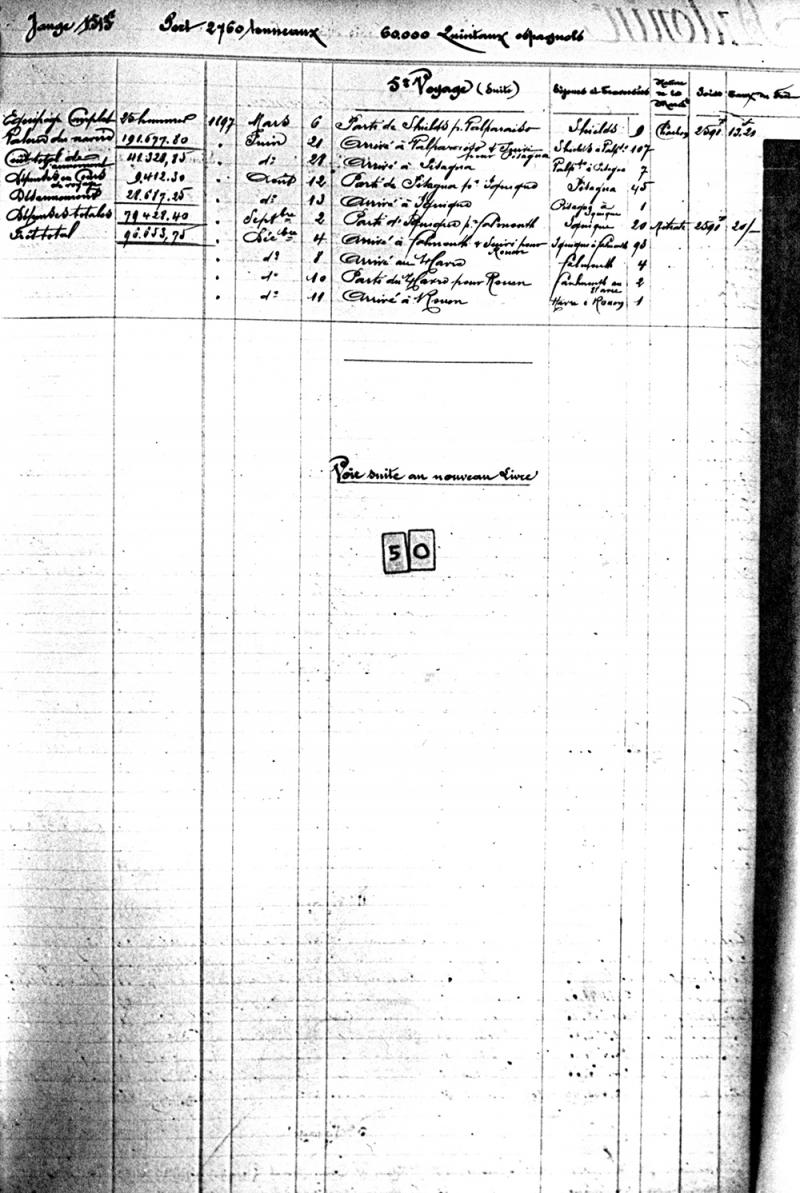 Jauge 1515 Port 2760 tonneaux 60.000 Quintaux espagnols
5e Voyage (Suite)
Equipage Complet 25 hommes 1897 Mars 6 Parti de Shields pr Valparaiso Shields 9 Charbon 2591 13.20
Valeur du navire 191.677.80 Juin 21 Arrivé à Valparaiso & Suivi pour Pisagua Shields à Valpso 107
Cout total de l'armement 41.328,85 do 28 Arrivé à Pisagua Valpso à Pisagua 7
Dépenses en Cours de voyage 9.412.30 Août 12 Parti de Pisagua pr Iquique Pisagua 45
Désarmement 28.687.25 do 13 Arrivé à Iquique Pisagua à Iquique 1
Dépenses totales 79.428.40 Septbre 2 Parti d'Iquique pr Falmouth Iquique 20 Nitrate 2591 20/-
Frêt total 96.653,75 Décbre 4 Arrivé à Falmouth & Suivi pour Rouen Iquique à Falmouth 93
do 8 Arrivé au Havre Falmouth 4
do 10 Parti du Havre pour Rouen Falmouth au Havre 2
do 11 Arrivé à Rouen Havre à Rouen 1
Voir suite au nouveau Livre
50